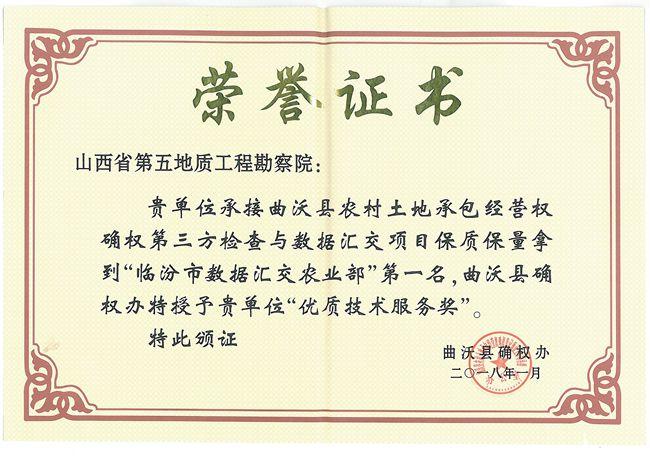 荣誉证书
山西省第五地质工程勘察院：
贵单位承接曲沃县农村土地承包经营权
确权第三方检查与数据汇交项目保质保量拿
到“临汾市数据汇交农业部”第一名，曲沃县确
权办特授予贵单位“优质技术服务奖”。
特此颁证
曲沃县确权办
二〇一八年一月